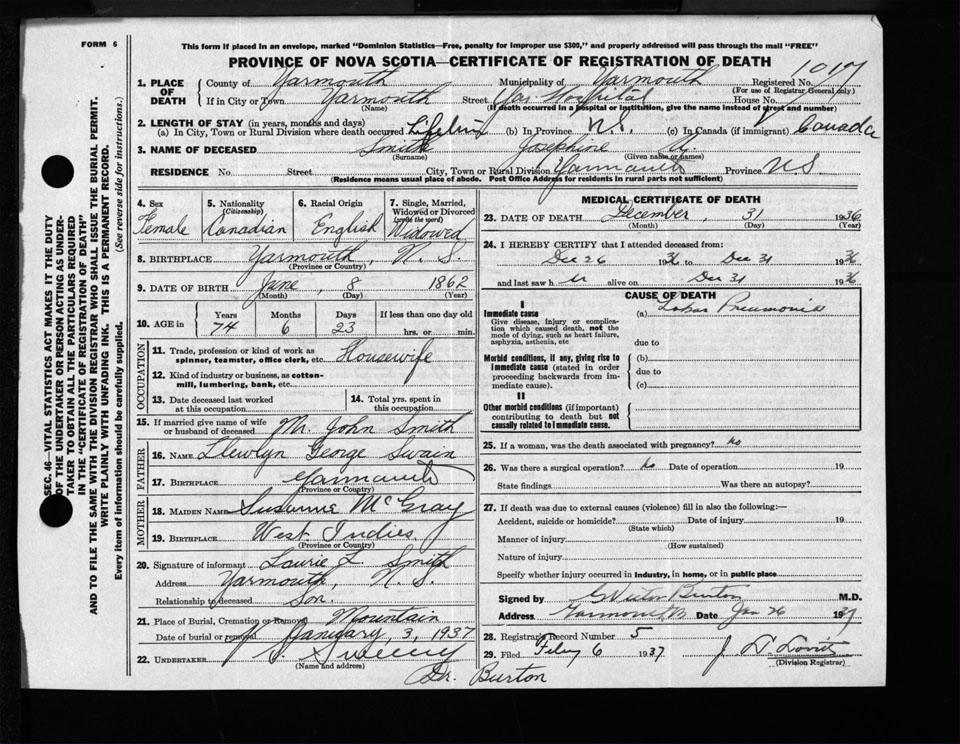 FORM 6
This form if placed in an envelope, marked "Dominion Statistics—Free, penalty for improper use $300," and properly addressed will pass through the mail "FREE"
PROVINCE OF NOVA SCOTIA—CERTIFICATE OF REGISTRATION OF DEATH
1017
1. PLACE OF DEATH
County of Yarmouth Municipality of Yarmouth Registered No.
(For use of Registrar General only)
If in City or Town Yarmouth Street Yar Hospital House No.
(Name) (If death occurred in a hospital or institution, give the name instead of street and number)
2. LENGTH OF STAY (in years, months and days)
(a) In City, Town or Rural Division where death occurred Lifetime (b) In Province N.S. (c) In Canada (if immigrant) Canada
3. NAME OF DECEASED Smith Josephine A.
(Surname) (Given name or names)
RESIDENCE No. Street City, Town or Rural Division Yarmouth Province NS
(Residence means usual place of abode. Post Office Address for residents in rural parts not sufficient)
4. Sex
Female
5. Nationality
(Citizenship)
Canadian
6. Racial Origin
English
7. Single, Married, Widowed or Divorced
(write the word)
Widowed
8. BIRTHPLACE Yarmouth, N. S.
(Province or Country)
9. DATE OF BIRTH June, 8 1862
(Month) (Day) (Year)
10. AGE in
Years Months Days If less than one day old
74 6 23 hrs. or min.
OCCUPATION
11. Trade, profession or kind of work as spinner, teamster, office clerk, etc. Housewife
12. Kind of industry or business, as cotton-mill, lumbering, bank, etc.
13. Date deceased last worked at this occupation
14. Total yrs. spent in this occupation
15. If married give name of wife or husband of deceased Mr. John Smith
FATHER
16. NAME Llewlyn George Swain
17. BIRTHPLACE Yarmouth
(Province or Country)
MOTHER
18. MAIDEN NAME Susanne McGray
19. BIRTHPLACE West Indies
(Province or Country)
20. Signature of informant Laurie L. Smith
Address Yarmouth, N. S.
Relationship to deceased Son.
21. Place of Burial, Cremation or Removal Mountain
Date of burial or removal January 3, 1937
22. UNDERTAKER Sweeny
(Name and address)
Dr. Burton
MEDICAL CERTIFICATE OF DEATH
23. DATE OF DEATH December, 31 1936
(Month) (Day) (Year)
24. I HEREBY CERTIFY that I attended deceased from:
Dec 26 1936 to Dec 31 1936
and last saw h er alive on Dec 31 1936
CAUSE OF DEATH
I
Immediate cause
Give disease, injury or complication which caused death, not the mode of dying, such as heart failure, asphyxia, asthenia, etc
(a) Lobar Pneumonia
due to
Morbid conditions, if any, giving rise to immediate cause (stated in order proceeding backwards from immediate cause).
(b)
due to
(c)
II
Other morbid conditions (if important) contributing to death but not causally related to immediate cause.
25. If a woman, was the death associated with pregnancy? No
26. Was there a surgical operation? No Date of operation 19
State findings Was there an autopsy?
27. If death was due to external causes (violence) fill in also the following:—
Accident, suicide or homicide? Date of injury 19
(State which)
Manner of injury
(How sustained)
Nature of injury
Specify whether injury occurred in industry, in home, or in public place
Signed by Burton M.D.
Address Yarmouth Date Jan 26 1937
28. Registrar's Record Number 5
29. Filed Feby 6 1937 J. D. Lovitt
(Division Registrar)
SEC. 46—VITAL STATISTICS ACT MAKES IT THE DUTY
OF THE UNDERTAKER OR PERSON ACTING AS UNDER-
TAKER TO OBTAIN ALL THE PARTICULARS REQUIRED
IN THE "CERTIFICATE OF REGISTRATION OF DEATH"
AND TO FILE THE SAME WITH THE DIVISION REGISTRAR WHO SHALL ISSUE THE BURIAL PERMIT.
WRITE PLAINLY WITH UNFADING INK. THIS IS A PERMANENT RECORD.
Every item of information should be carefully supplied. (See reverse side for instructions.)